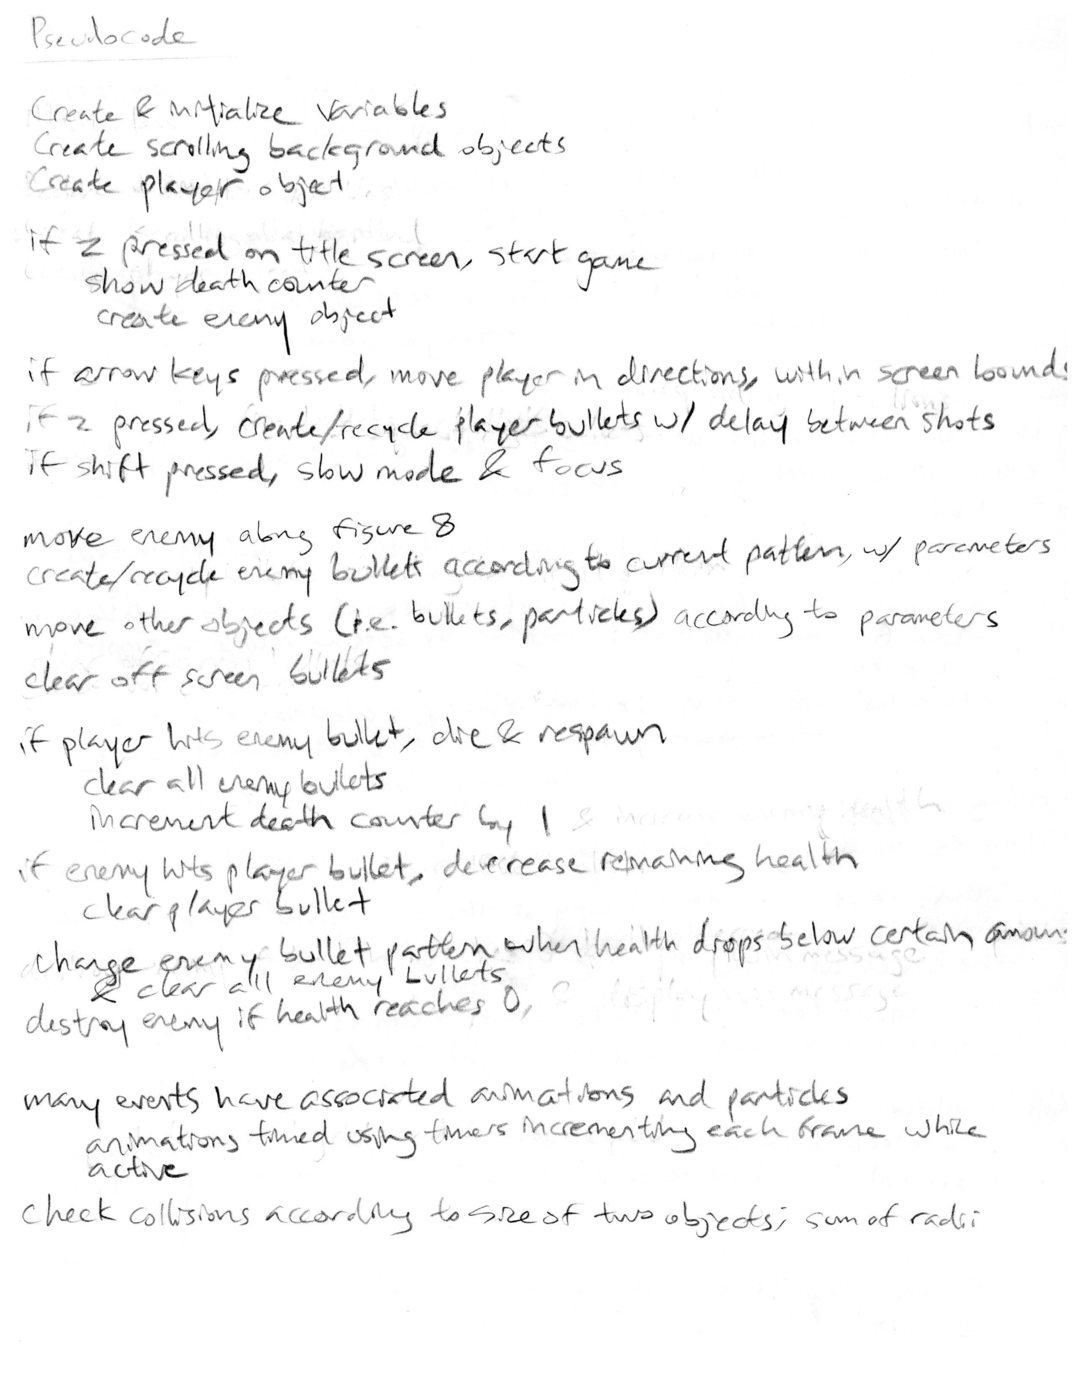 Pseudocode
Create & initialize variables
Create scrolling background objects
Create player object
if z pressed on title screen, start game
show death counter
create enemy object
if arrow keys pressed, move player in directions, within screen bounds
if z pressed, create/recycle player bullets w/ delay between shots
if shift pressed, slow mode & focus
move enemy along figure 8
create/recycle enemy bullets according to current pattern, w/ parameters
move other objects (i.e. bullets, particles) according to parameters
clear off screen bullets
if player hits enemy bullet, die & respawn
clear all enemy bullets
increment death counter by 1
if enemy hits player bullet, decrease remaining health
clear player bullet
change enemy bullet pattern when health drops below certain amoun
& clear all enemy bullets
destroy enemy if health reaches 0,
many events have associated animations and particles
animations timed using timers incrementing each frame while
active
check collisions according to size of two objects; sum of radii